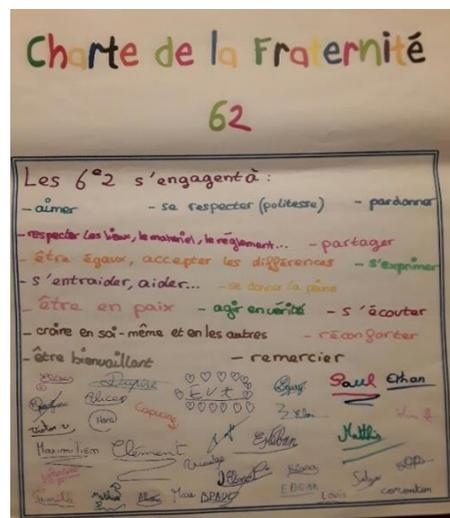 Charte de la Fraternité
62
Les 6e2 s'engagent à :
- aimer - se respecter (politesse) - pardonner
- respecter les lieux, le matériel, le règlement... - partager
- être égaux, accepter les différences - s'exprimer
- s'entraider, aider... - se donner la peine
- être en paix - agir en vérité - s'écouter
- croire en soi-même et en les autres - réconforter
- être bienvaillant - remercier
Saul Ethan
Eve
Alicia
Capucine
Maximilien Clément Esteban Mathis
EDGAR Louis corentin